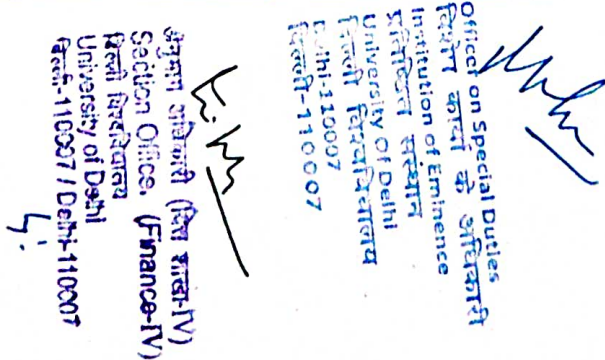 Officer on Special Duties
विशेष कार्य के अधिकारी
Institution of Eminence
प्रतिष्ठित संस्थान
University of Delhi
दिल्ली विश्वविद्यालय
Delhi-110007
दिल्ली-110007
अनुभाग अधिकारी (वित्त शाखा-IV)
Section Office. (Finance-IV)
दिल्ली विश्वविद्यालय
University of Delhi
दिल्ली-110007 / Delhi-110007